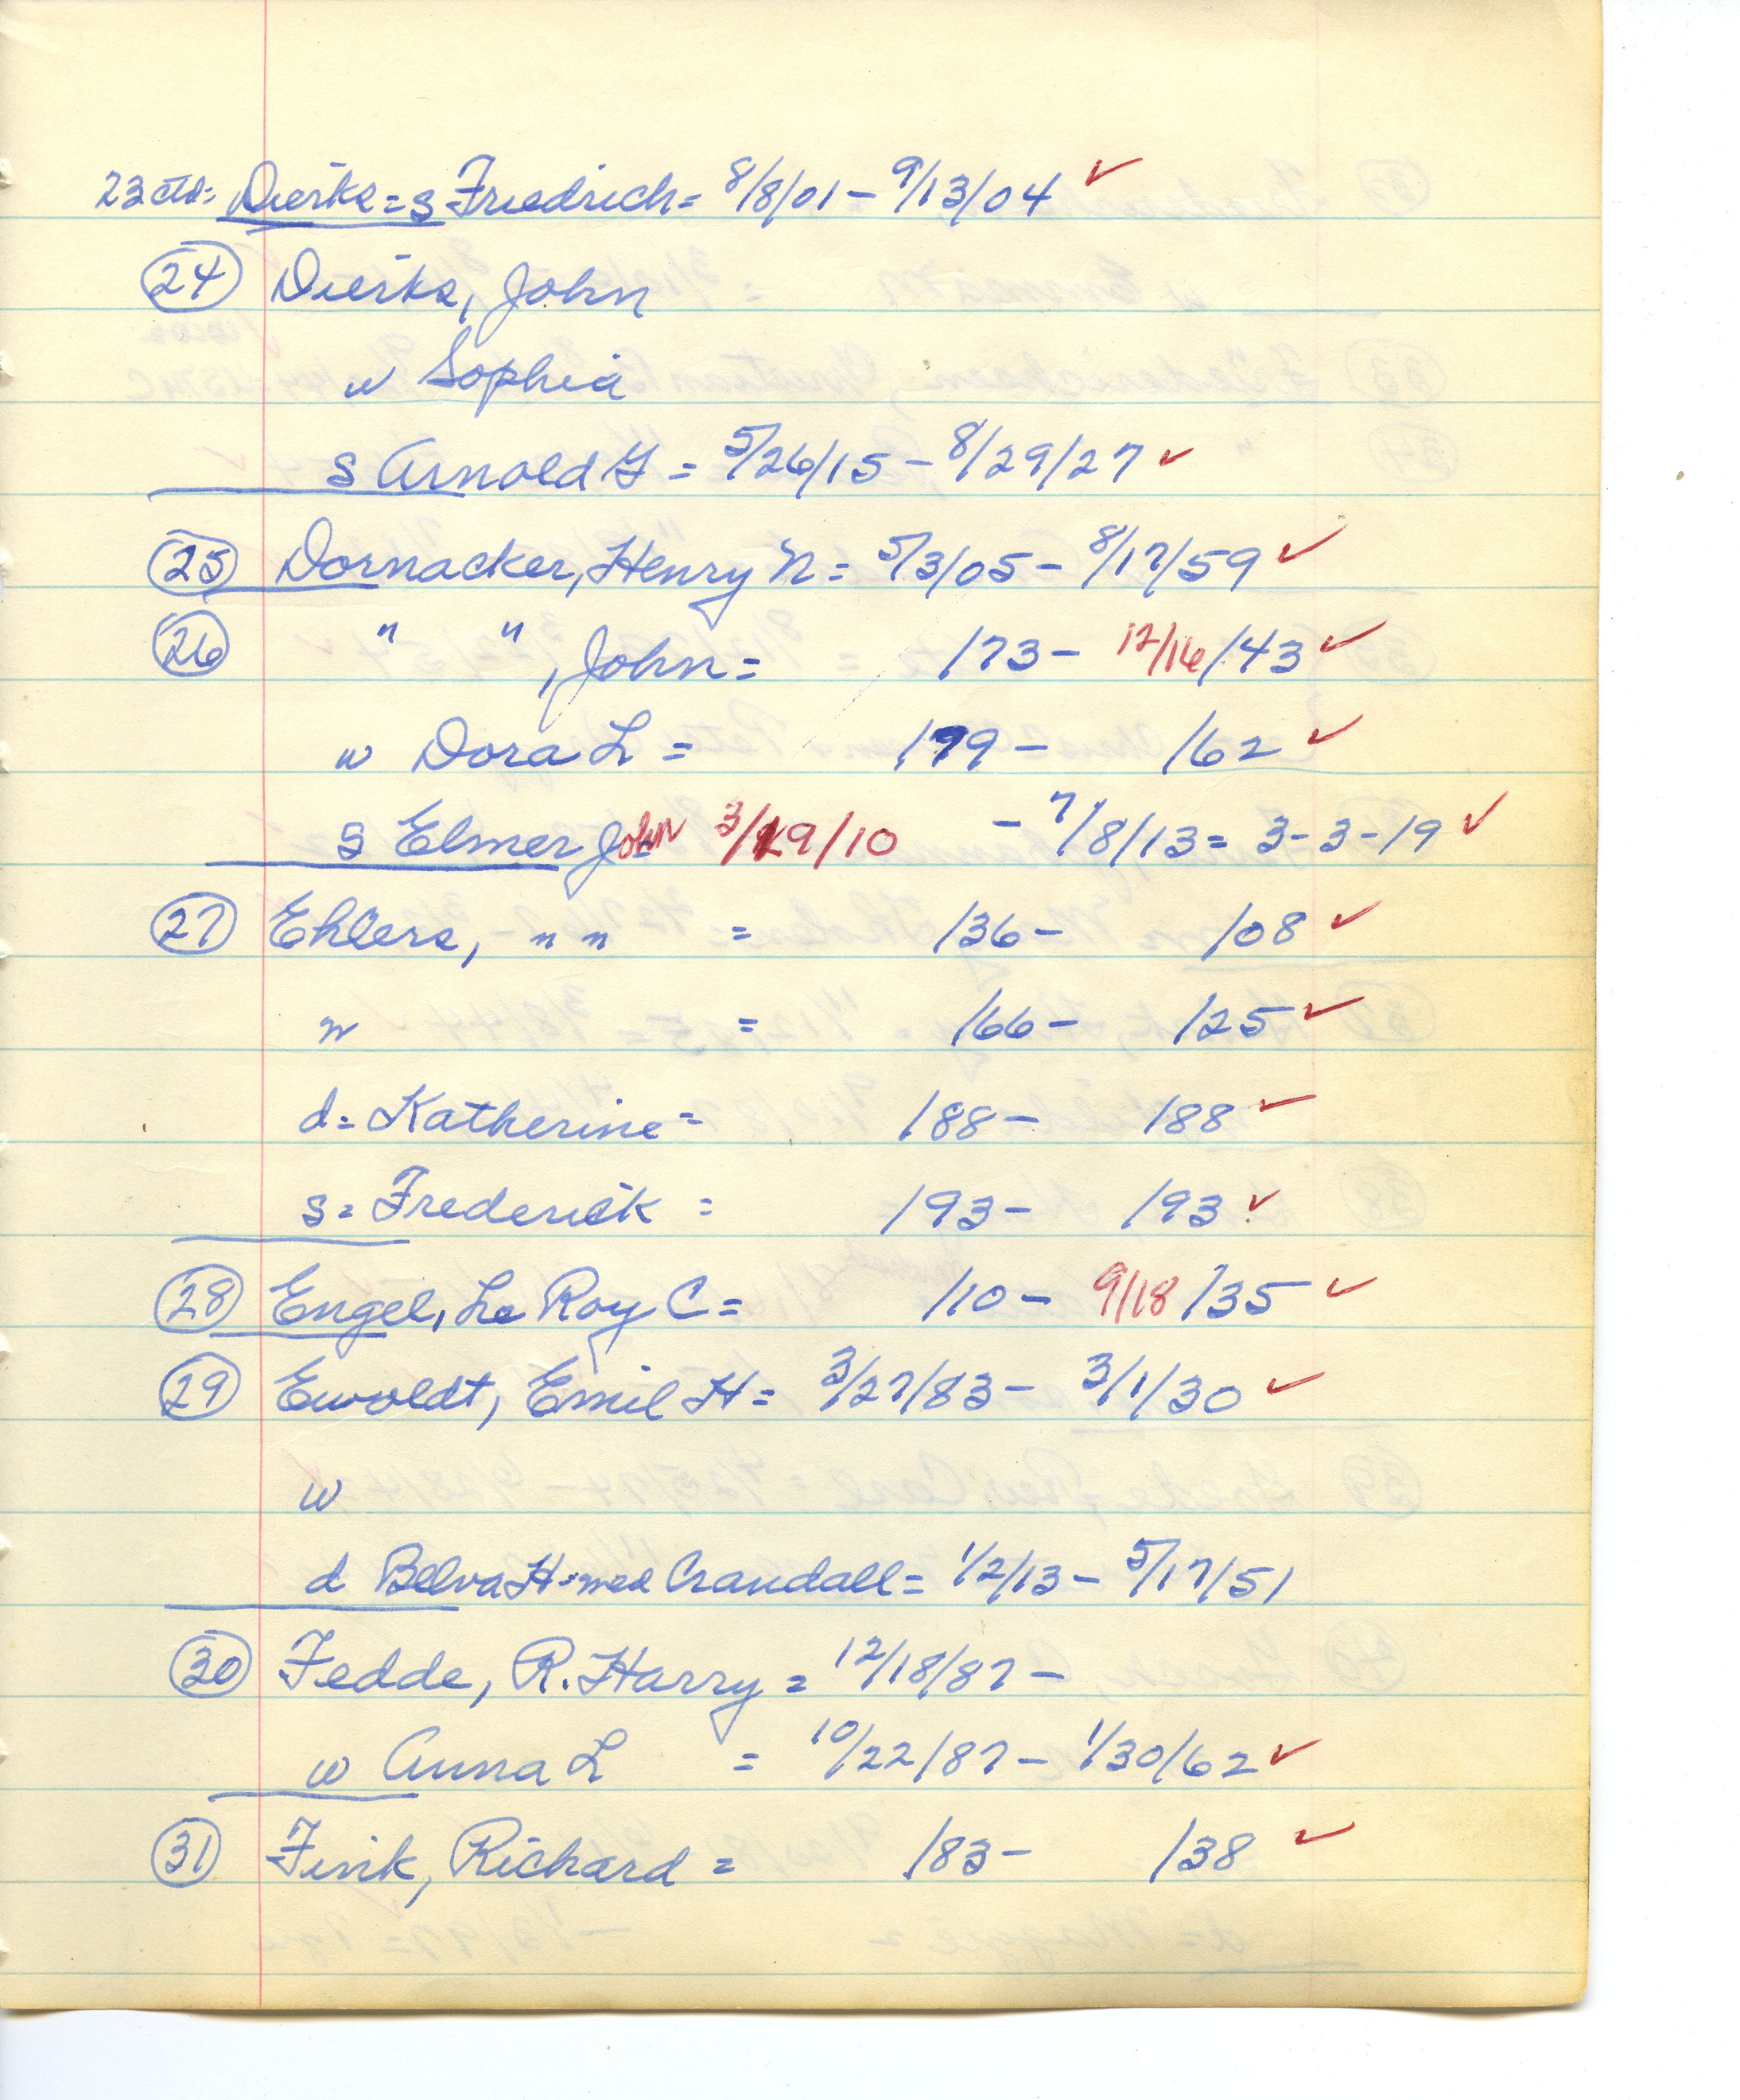 23 ctd: Dierks = s Friedrich = 8/8/01 - 9/13/04 ✓
24 Dierks, John
w Sophia
s Arnold G = 5/26/15 - 8/29/27 ✓
25 Dornacker, Henry N = 5/3/05 - 8/17/59 ✓
26 " " , John = /73 - 12/16/43 ✓
w Dora L = /79 - /62 ✓
s Elmer John 3/29/10 - 7/8/13 = 3-3-19 ✓
27 Ehlers, " " = /36 - /08 ✓
w = /66 - /25 ✓
d = Katherine = /88 - /88 ✓
s = Frederick = /93 - /93 ✓
28 Engel, Le Roy C = /10 - 9/18/35 ✓
29 Ewoldt, Emil H = 3/27/83 - 3/1/30 ✓
w
d Belva H = med Crandall = 1/2/13 - 5/17/51
30 Fedde, R. Harry = 12/18/87 -
w Anna L = 10/22/87 - 1/30/62 ✓
31 Fink, Richard = /83 - /38 ✓